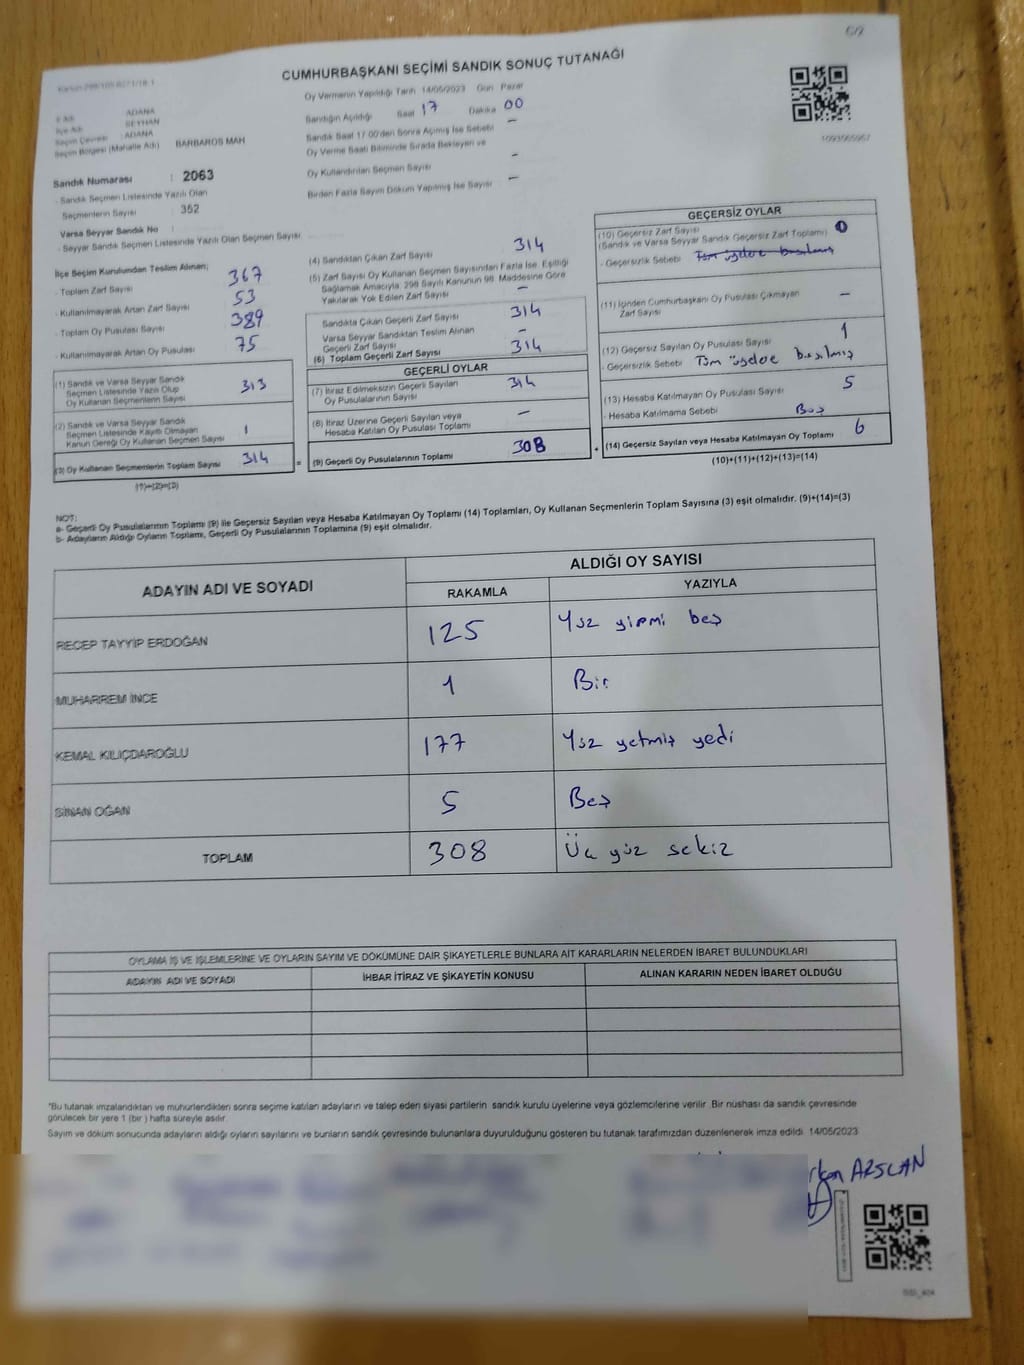 C/2
CUMHURBAŞKANI SEÇİMİ SANDIK SONUÇ TUTANAĞI
İl Adı : ADANA
İlçe Adı : SEYHAN
Seçim Çevresi : ADANA
Seçim Bölgesi (Mahalle Adı) BARBAROS MAH
Sandık Numarası : 2063
- Sandık Seçmen Listesinde Yazılı Olan
Seçmenlerin Sayısı : 352
Varsa Seyyar Sandık No :
- Seyyar Sandık Seçmen Listesinde Yazılı Olan Seçmen Sayısı
Oy Vermenin Yapıldığı Tarih 14/05/2023 Gün Pazar
Sandığın Açıldığı Saat 17 Dakika 00
Sandık Saat 17.00'den Sonra Açılmış İse Sebebi –
Oy Verme Saati Bitiminde Sırada Bekleyen ve
Oy Kullandırılan Seçmen Sayısı –
Birden Fazla Sayım Döküm Yapılmış İse Sayısı –
İlçe Seçim Kurulundan Teslim Alınan;
- Toplam Zarf Sayısı 367
- Kullanılmayarak Artan Zarf Sayısı 53
- Toplam Oy Pusulası Sayısı 389
- Kullanılmayarak Artan Oy Pusulası 75
(1) Sandık ve Varsa Seyyar Sandık
Seçmen Listesinde Yazılı Olup
Oy Kullanan Seçmenlerin Sayısı 313
(2) Sandık ve Varsa Seyyar Sandık
Seçmen Listesinde Kayıtlı Olmayan
Kanun Gereği Oy Kullanan Seçmen Sayısı 1
(3) Oy Kullanan Seçmenlerin Toplam Sayısı 314
(1)+(2)=(3)
(4) Sandıktan Çıkan Zarf Sayısı 314
(5) Zarf Sayısı Oy Kullanan Seçmen Sayısından Fazla İse, Eşitliği
Sağlamak Amacıyla; 298 Sayılı Kanunun 98. Maddesine Göre
Yakılarak Yok Edilen Zarf Sayısı –
Sandıkta Çıkan Geçerli Zarf Sayısı 314
Varsa Seyyar Sandıktan Teslim Alınan
Geçerli Zarf Sayısı –
(6) Toplam Geçerli Zarf Sayısı 314
GEÇERLİ OYLAR
(7) İtiraz Edilmeksizin Geçerli Sayılan
Oy Pusulalarının Sayısı 314
(8) İtiraz Üzerine Geçerli Sayılan veya
Hesaba Katılan Oy Pusulası Toplamı –
= (9) Geçerli Oy Pusulalarının Toplamı 308
GEÇERSİZ OYLAR
(10) Geçersiz Zarf Sayısı
(Sandık ve Varsa Seyyar Sandık Geçersiz Zarf Toplamı)
- Geçersizlik Sebebi Tüm üyelere basılmış
(11) İçinden Cumhurbaşkanı Oy Pusulası Çıkmayan
Zarf Sayısı –
(12) Geçersiz Sayılan Oy Pusulası Sayısı 1
- Geçersizlik Sebebi Tüm üyelere basılmış
(13) Hesaba Katılmayan Oy Pusulası Sayısı 5
- Hesaba Katılmama Sebebi Boş
+ (14) Geçersiz Sayılan veya Hesaba Katılmayan Oy Toplamı 6
(10)+(11)+(12)+(13)=(14)
NOT:
a- Geçerli Oy Pusulalarının Toplamı (9) ile Geçersiz Sayılan veya Hesaba Katılmayan Oy Toplamı (14) Toplamları, Oy Kullanan Seçmenlerin Toplam Sayısına (3) eşit olmalıdır. (9)+(14)=(3)
b- Adayların Aldığı Oyların Toplamı, Geçerli Oy Pusulalarının Toplamına (9) eşit olmalıdır.
ADAYIN ADI VE SOYADI ALDIĞI OY SAYISI
RAKAMLA YAZIYLA
RECEP TAYYİP ERDOĞAN 125 Yüz yirmi beş
MUHARREM İNCE 1 Bir
KEMAL KILIÇDAROĞLU 177 Yüz yetmiş yedi
SİNAN OĞAN 5 Beş
TOPLAM 308 Üç yüz sekiz
OYLAMA İŞ VE İŞLEMLERİNE VE OYLARIN SAYIM VE DÖKÜMÜNE DAİR ŞİKAYETLERLE BUNLARA AİT KARARLARIN NELERDEN İBARET BULUNDUKLARI
ADAYIN ADI VE SOYADI İHBAR İTİRAZ VE ŞİKAYETİN KONUSU ALINAN KARARIN NEDEN İBARET OLDUĞU
*Bu tutanak imzalandıktan ve mühürlendikten sonra seçime katılan adayların ve talep eden siyasi partilerin sandık kurulu üyelerine veya gözlemcilerine verilir. Bir nüshası da sandık çevresinde
görülecek bir yere 1 (bir ) hafta süreyle asılır.
Sayım ve döküm sonucunda adayların aldığı oyların sayılarını ve bunların sandık çevresinde bulunanlara duyurulduğunu gösteren bu tutanak tarafımızdan düzenlenerek imza edildi. 14/05/2023
ARSLAN